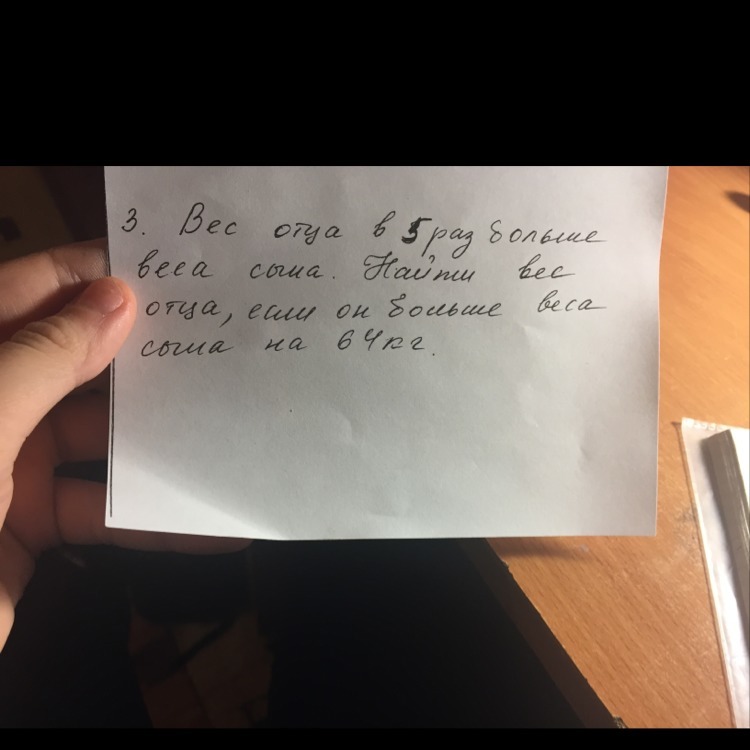 3. Вес отца в 5 раз больше
веса сына. Найти вес
отца, если он больше веса
сына на 64кг.